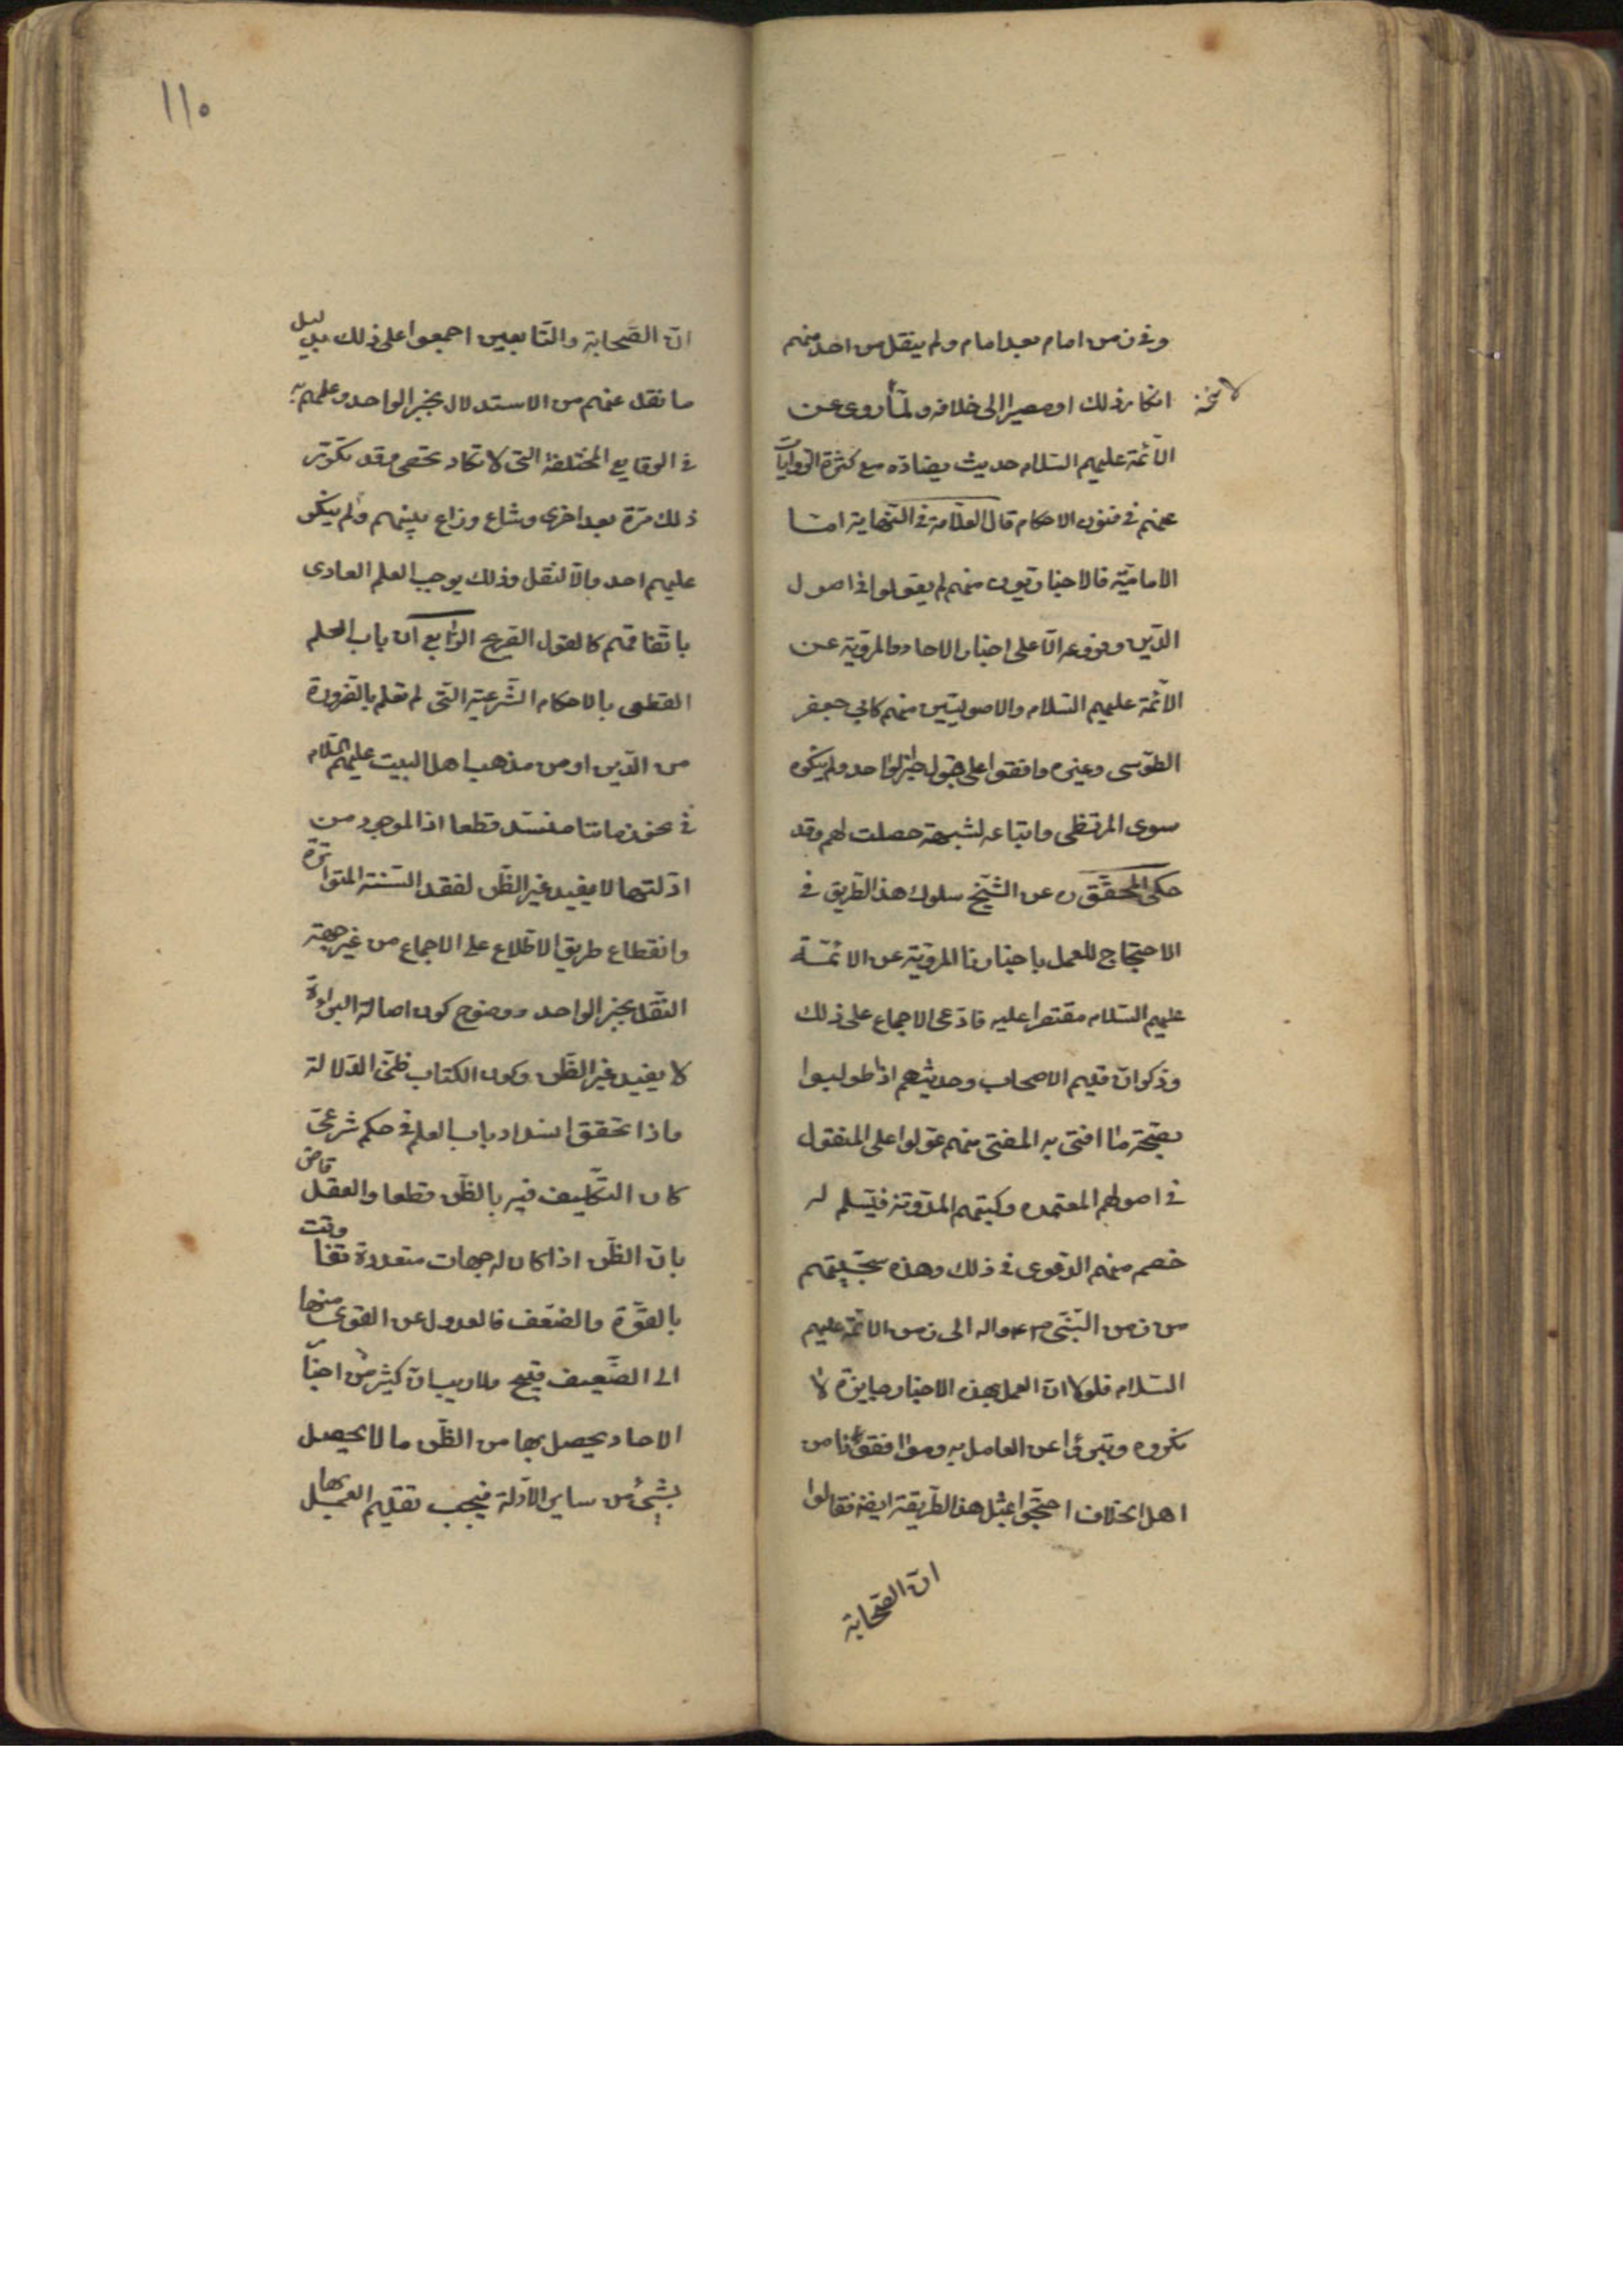 وفى زمن امام بعد امام ولم ينقل من احد منهم
انكار ذلك او مصيرا الى خلافه ولما روى عن
لا نسخة
الائمة عليهم السلام حديث يضاده مع كثرة الروايات
عنهم فى فنون الاحكام قال العلامة فى النهاية امّا
الاماميّة فالاخباريّون منهم لم يعوّلوا فى اصول
الدّين وفروعه الّا على اخبار الاحاد المرويّة عن
الائمّة عليهم السّلام والاصوليّين منهم كابى جعفر
الطّوسى وغيره وافقوا على قبول خبر الواحد ولم ينكره
سوى المرتضى واتباعه لشبهة حصلت لهم وقد
حكى المحقّق ره عن الشّيخ سلوك هذا الطّريق فى
الاحتجاج للعمل باخبارنا المرويّة عن الائمّة
عليهم السّلام مقتصرا عليه فادّعى الاجماع على ذلك
وذكر ان قديم الاصحاب وحديثهم اذا طولبوا
بصحّة ما افتى به المفتى منهم عوّلوا على المنقول
فى اصولهم المعتمده وكتبهم المدوّنة فيسلّم له
خصم منهم الدّعوى فى ذلك وهذه سجيّتهم
من زمن النّبىّ ص واله الى زمن الائمّة عليهم
السّلام فلولا انّ العمل بهذه الاخبار جايزة لا
نكروه وتبرّؤا عن العامل به وموافقونا من
اهل الخلاف احتجّوا بمثل هذا الطّريقة ايضا فقالوا
ان الصّحابة
١١٠
انّ الصّحابة والتّابعين اجمعوا على ذلك بدليل
ما نقل عنهم من الاستدلال بخبر الواحد وعلمهم به
فى الوقايع المختلفة التى لا تكاد تحصى وقد تكرّر
ذلك مرّة بعد اخرى وشاع وذاع بينهم ولم ينكر
عليهم احد والّا لنقل وذلك يوجب العلم العادى
باتّفاقهم كالقول الصّريح الرّابع ان باب العلم
القطعى بالاحكام الشّرعيّة الّتى لم تعلم بالضّرورة
من الدّين او من مذهب اهل البيت عليهم السّلام
فى نحو زماننا منسدّ قطعا اذ الموجود من
ادلّتها لا يفيد غير الظّن لفقد السّنّة المتواترة
وانقطاع طريق الاطّلاع على الاجماع من غير جهة
النّقل بخبر الواحد ووضوح كون اصالة البراءة
لا يفيد غير الظّن وكون الكتاب ظنّى الدّلالة
واذا تحقق انسداد باب العلم فى حكم شرعىّ
كان التّكليف فيه بالظّن قطعا والعقل قاض
بان الظّن اذا كان له جهات متعددة تفاوتت
بالقوّة والضّعف فالعدول عن القوى منها
الى الضّعيف قبيح ولا ريب ان كثير من اخبار
الاحاد يحصل بها من الظّن ما لا يحصل
بشئ من ساير الادلّة فيجب تقديم العمل بها